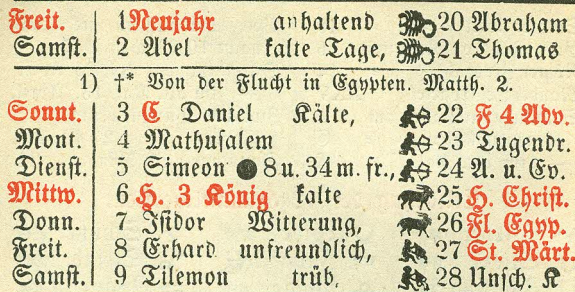 Freit. 1 Neujahr anhaltend 20 Abraham
Samst. 2 Abel kalte Tage, 21 Thomas
1) †* Von der Flucht in Egypten. Matth. 2.
Sonnt. 3 C Daniel Kälte, 22 F 4 Adv.
Mont. 4 Mathusalem 23 Tugendr.
Dienst. 5 Simeon ● 8 u. 34 m. fr., 24 A. u. Ev.
Mittw. 6 H. 3 König kalte 25 H. Christ.
Donn. 7 Isidor Witterung, 26 Fl. Egyp.
Freit. 8 Erhard unfreundlich, 27 St. Märt.
Samst. 9 Tilemon trüb, 28 Unsch. K